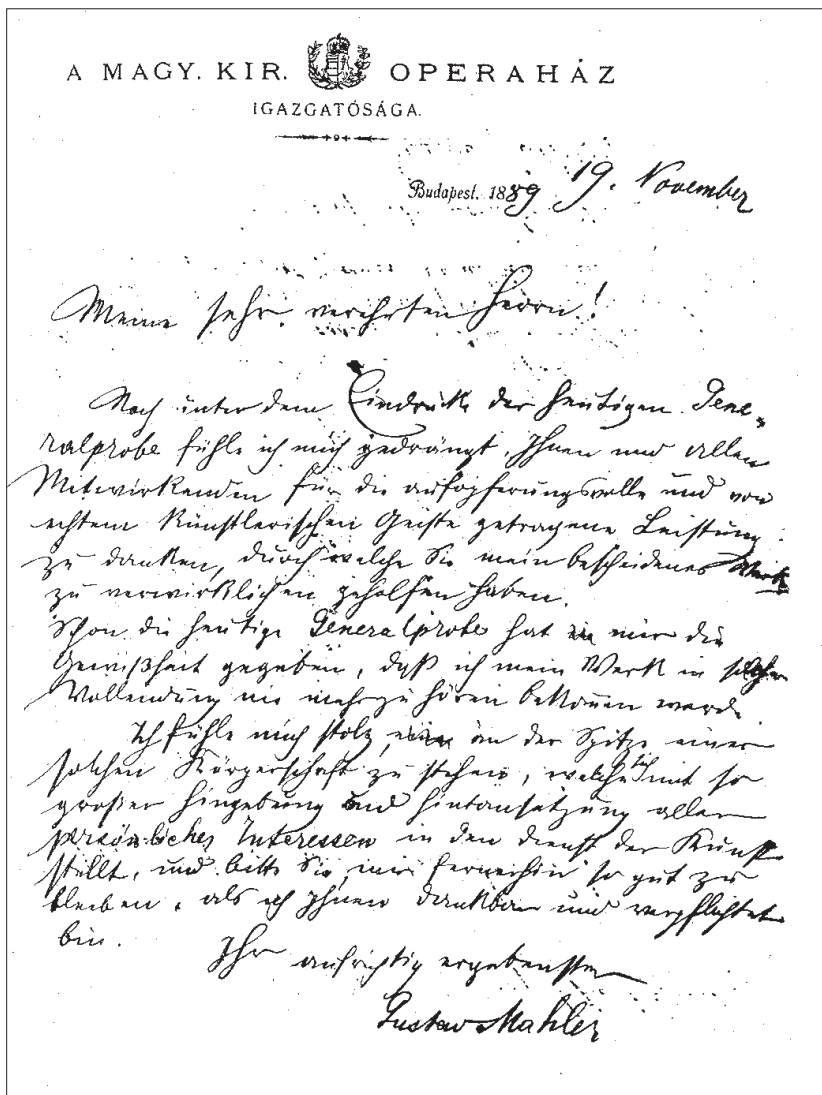 A MAGY. KIR. OPERAHÁZ
IGAZGATÓSÁGA.
Budapest, 1889 19. November
Meine sehr verehrten Herrn!
Noch unter dem Eindrucke der heutigen Gene-
ralprobe fühle ich mich gedrängt, Ihnen und allen
Mitwirkenden für die aufopferungsvolle und von
echtem künstlerischen Geiste getragene Leistung
zu danken, durch welche Sie mein bescheidenes Werk
zu verwirklichen geholfen haben.
Schon die heutige Generalprobe hat mir die
Gewißheit gegeben, daß ich mein Werk in solcher
Vollendung nie mehr zu hören bekommen werde.
Ich fühle mich stolz, an der Spitze einer
solchen Körperschaft zu stehen, welche sich mit so
großer Hingebung und Hintansetzung aller
persönlichen Interessen in den Dienst der Kunst
stellt, und bitte Sie, mir fernerhin so gut zu
bleiben, als ich Ihnen dankbar und verpflichtet
bin.
Ihr aufrichtig ergebenster
Gustav Mahler